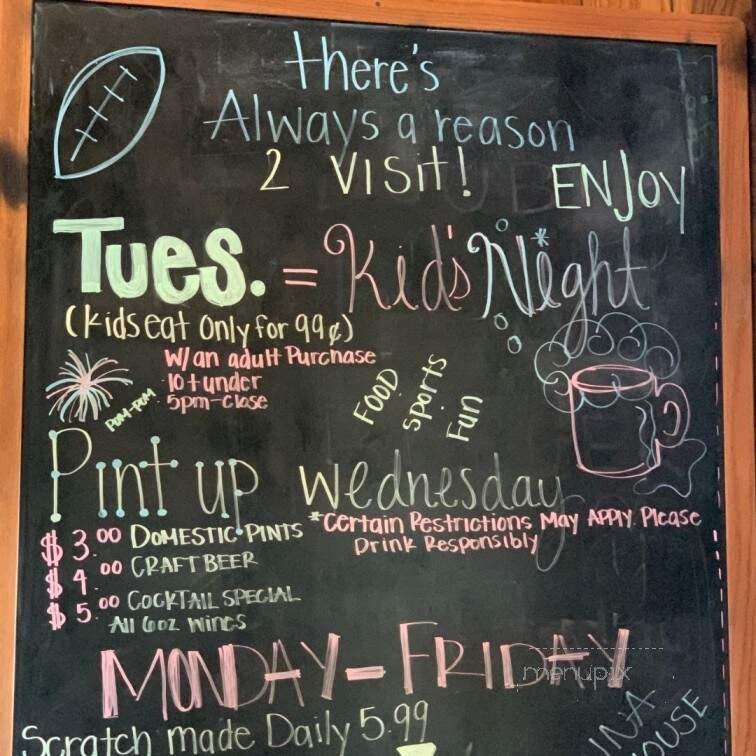 there's
Always a reason
2 VISIT!
ENJOY
Tues. = Kid's Night
(Kids eat Only for 99¢)
W/ an adult Purchase
10 + under
5pm-close
POM-POM
FOOD
Sports
Fun
Pint up Wednesday
*Certain Restrictions May APPLY. Please
Drink Responsibly
$3.00 DOMESTIC PINTS
$4.00 CRAFT BEER
$5.00 COCKTAIL SPECIAL
All 6oz WINES
MONDAY-FRIDAY
menupix
Scratch made Daily 5.99
IN A